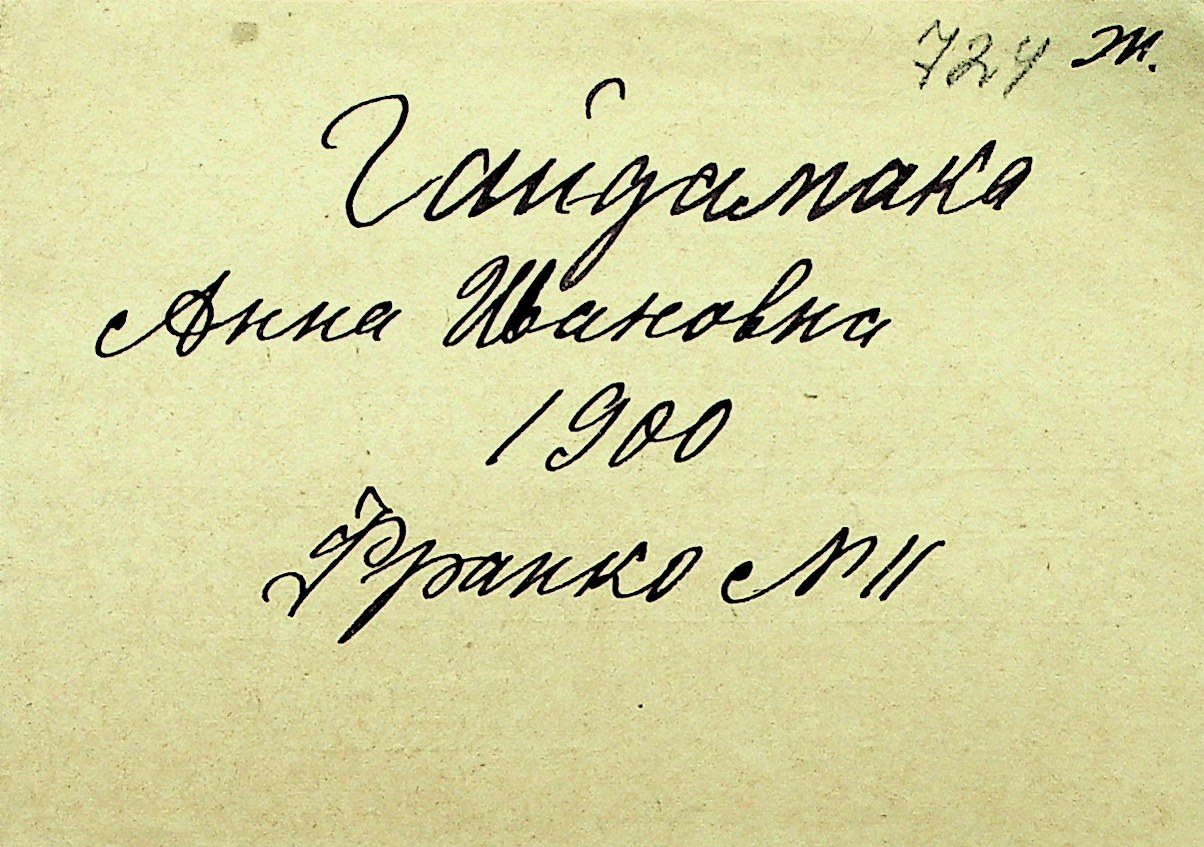 724 ж.
Гайдамака
Анна Ивановна
1900
Франко № 11